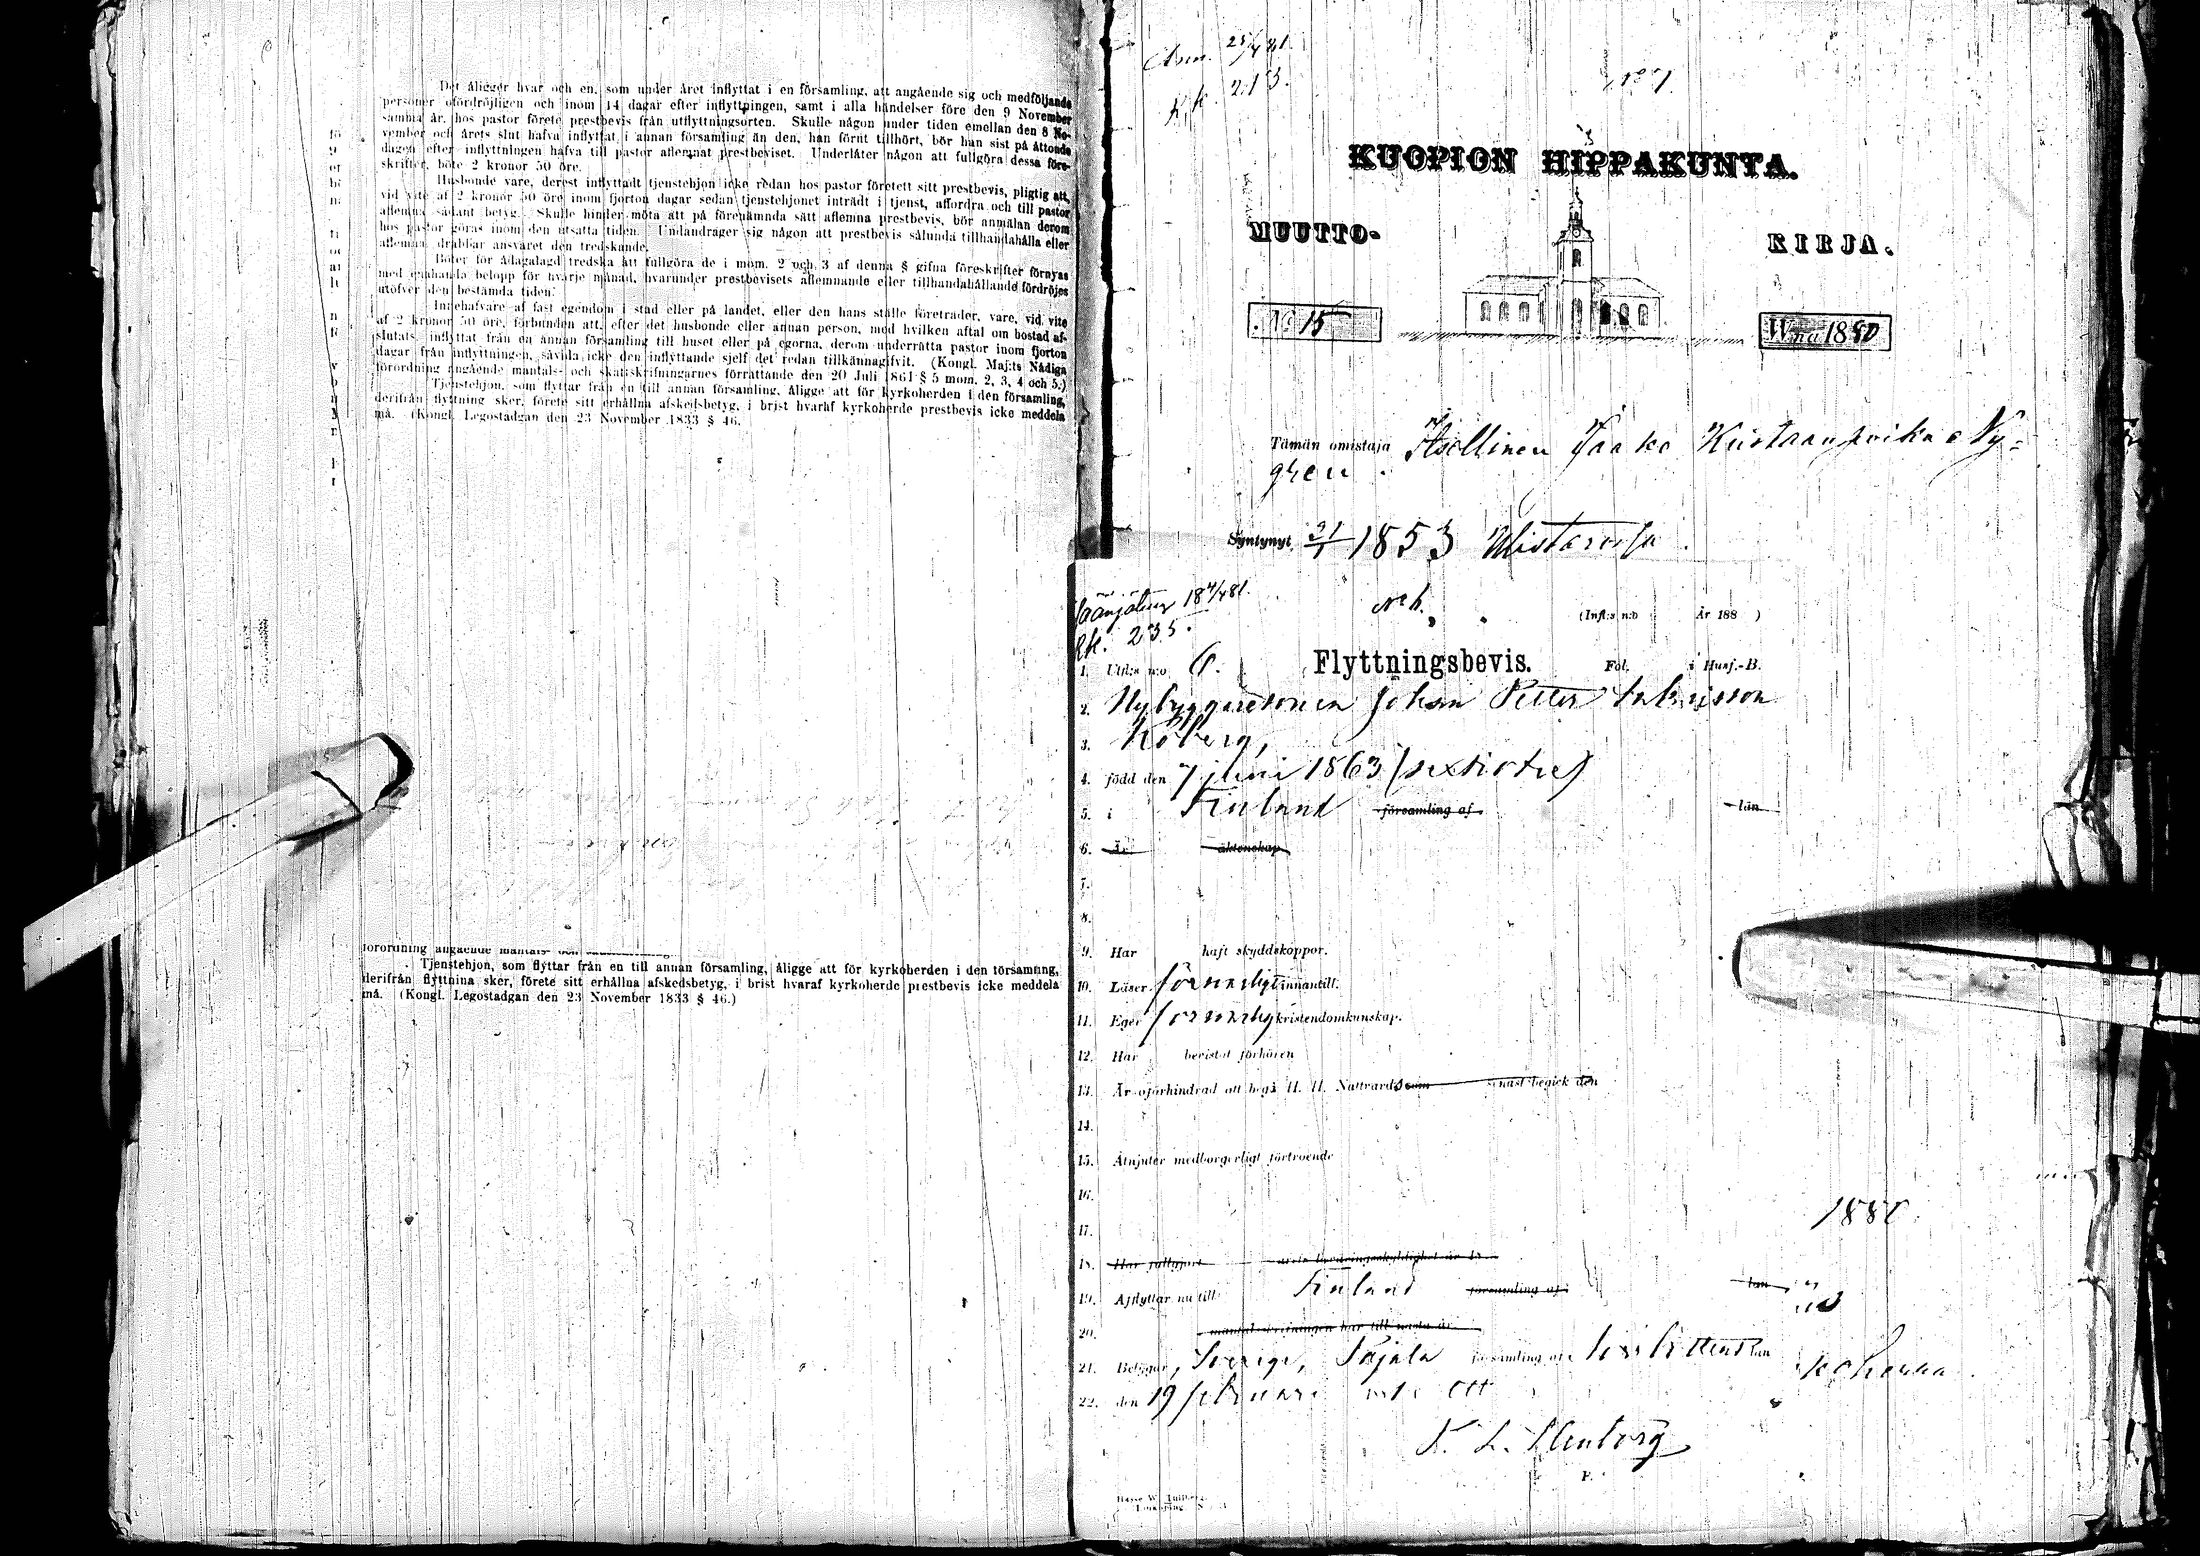 Det åligger hvar och en, som under året inflyttat i en församling, att angående sig och medföljande
personer ofördröjligen och inom 14 dagar efter inflyttningen, samt i alla händelser före den 9 November
samma år, hos pastor förete prestbevis från utflyttningsorten. Skulle någon under tiden emellan den 8 No-
vember och årets slut hafva inflyttat i annan församling än den, han förut tillhört, bör han sist på åttonde
dagen efter inflyttningen hafva till pastor aflemnat prestbeviset. Underlåter någon att fullgöra dessa före-
skrifter, böte 2 kronor 50 öre.
Husbonde vare, derest inflyttadt tjenstehjon icke redan hos pastor företett sitt prestbevis, pligtig att,
vid vite af 2 kronor 50 öre inom fjorton dagar sedan tjenstehjonet inträdt i tjenst, affordra och till pastor
aflemna sådant betyg. Skulle hinder möta att på förenämnda sätt aflemna prestbevis, bör anmälan derom
hos pastor göras inom den utsatta tiden. Undandrager sig någon att prestbevis sålunda tillhandahålla eller
aflemna, drabbar ansvaret den tredskande.
Böter för ådagalagd tredska att fullgöra de i mom. 2 och 3 af denna § gifna föreskrifter förnyas
med enahanda belopp för hvarje månad, hvarunder prestbevisets aflemnande eller tillhandahållande fördröjes
utöfver den bestämda tiden.
Innehafvare af fast egendom i stad eller på landet, eller den hans ställe företräder, vare, vid vite
af 2 kronor 50 öre, förbunden att, efter det husbonde eller annan person, med hvilken aftal om bostad af-
slutats, inflyttat från en annan församling till huset eller på egorna, derom underrätta pastor inom fjorton
dagar från inflyttningen, såvida icke den inflyttande sjelf det redan tillkännagifvit. (Kongl. Maj:ts Nådiga
förordning angående mantals- och skattskrifningarnes förrättande den 20 Juli 1861 § 5 mom. 2, 3, 4 och 5.)
Tjenstehjon, som flyttar från en till annan församling, åligge att för kyrkoherden i den församling,
derifrån flyttning sker, förete sitt erhållna afskedsbetyg, i brist hvaraf kyrkoherde prestbevis icke meddela
må. (Kongl. Legostadgan den 23 November 1833 § 46.
förordning angående mantals- och
Tjenstehjon, som flyttar från en till annan församling, åligge att för kyrkoherden i den församling,
derifrån flyttning sker, förete sitt erhållna afskedsbetyg, i brist hvaraf kyrkoherde prestbevis icke meddela
må. (Kongl. Legostadgan den 23 November 1833 § 46.)
Ann. 25/4 81.
K.k. 213.
KUOPION HIPPAKUNTA.
MUUTTO-
KIRJA.
No 15
W:na 1880
Tämän omistaja Jaako Kustaanpoika Ny-
gren
Syntynyt 21/1 1853
18 4/4 81.
Rk. 235.
(Infl:s n:o År 188 )
1. Utfl:s n:o 6. Flyttningsbevis. Fol. i Husf.-B.
2. Nybyggaresonen Johan Petter
3. Köberg,
4. född den 7 juni 1863 (sextiotre)
5. i Finland församling af län
6. Är äktenskap
7.
8.
9. Har haft skyddskoppor.
10. Läser försvarligt innantill.
11. Eger försvarlig kristendomkunskap.
12. Har bevistat förhören
13. Är oförhindrad att begå H. H. Nattvard som senast begick den
14.
15. Åtnjuter medborgerligt förtroende
16.
17.
1880
18. Har fullgjort
19. Afflyttar nu till Finland församling af län
20. mantalsskrifningen här till nästa år.
21. Betygar, Sverige, Pajala församling af Norrbottens län
22. den 19 februari 1881 Ott
P.